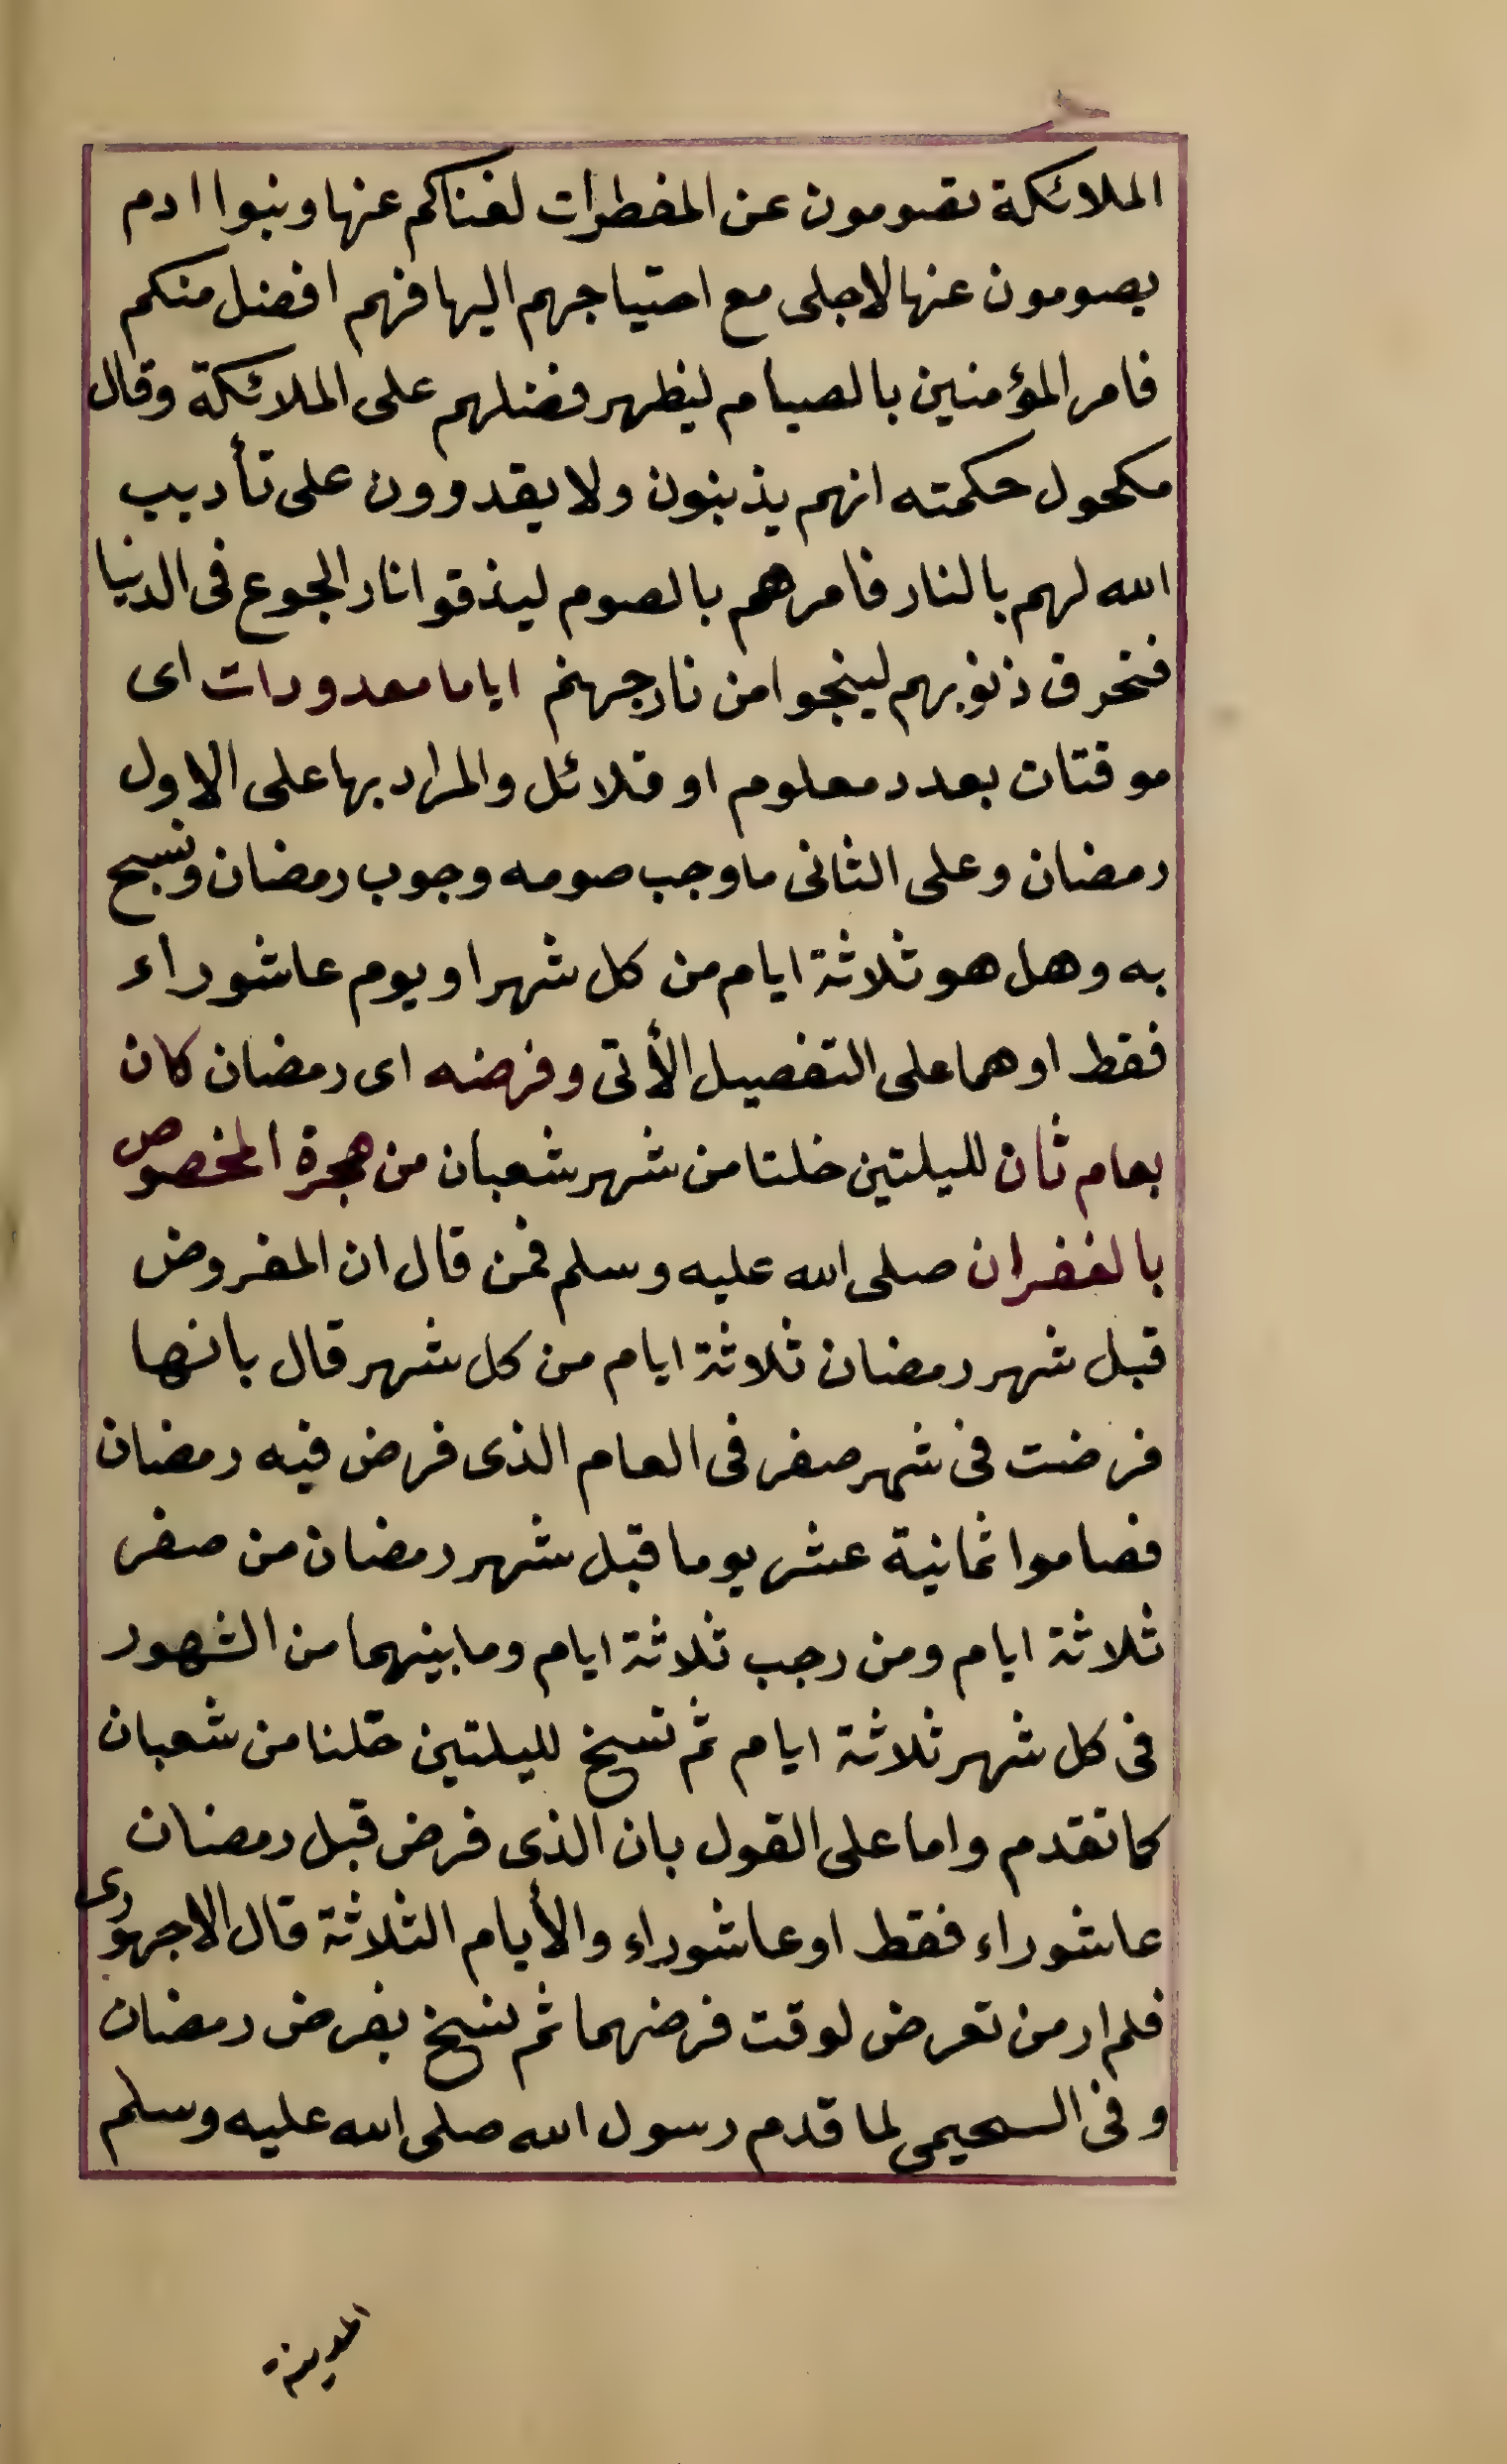 الملائكة تصومون عن المفطرات لغناكم عنها وبنوا ادم
يصومون عنها لاجلى مع احتياجهم اليها فهم افضل منكم
فامر المؤمنين بالصيام ليظهر فضلهم على الملائكة وقال
مكحول حكمته انهم يذنبون ولا يقدرون على تأديب
الله لهم بالنار فامرهم بالصوم ليذقوا نار الجوع فى الدنيا
فتحرق ذنوبهم لينجوا من نار جهنم اياما معدودات اى
موقتات بعدد معلوم او قلائل والمراد بها على الاول
رمضان وعلى الثانى ما وجب صومه وجوب رمضان ونسخ
به وهل هو ثلاثة ايام من كل شهر او يوم عاشوراء
فقط او هما على التفصيل الأتى وفرضه اى رمضان كان
بعام ثان لليلتين خلتا من شهر شعبان من هجرة المخصوص
بالغفران صلى الله عليه وسلم فمن قال ان المفروض
قبل شهر رمضان ثلاثة ايام من كل شهر قال بانها
فرضت فى شهر صفر فى العام الذى فرض فيه رمضان
فصاموا ثمانية عشر يوما قبل شهر رمضان من صفر
ثلاثة ايام ومن رجب ثلاثة ايام وما بينهما من الشهور
فى كل شهر ثلاثة ايام ثم نسخ لليلتين خلتا من شعبان
كما تقدم واما على القول بان الذى فرض قبل رمضان
عاشوراء فقط او عاشوراء والأيام الثلاثة قال الاجهورى
فلم ار من تعرض لوقت فرضهما ثم نسخ بفرض رمضان
وفى السحيمى لما قدم رسول الله صلى الله عليه وسلم
المدينة